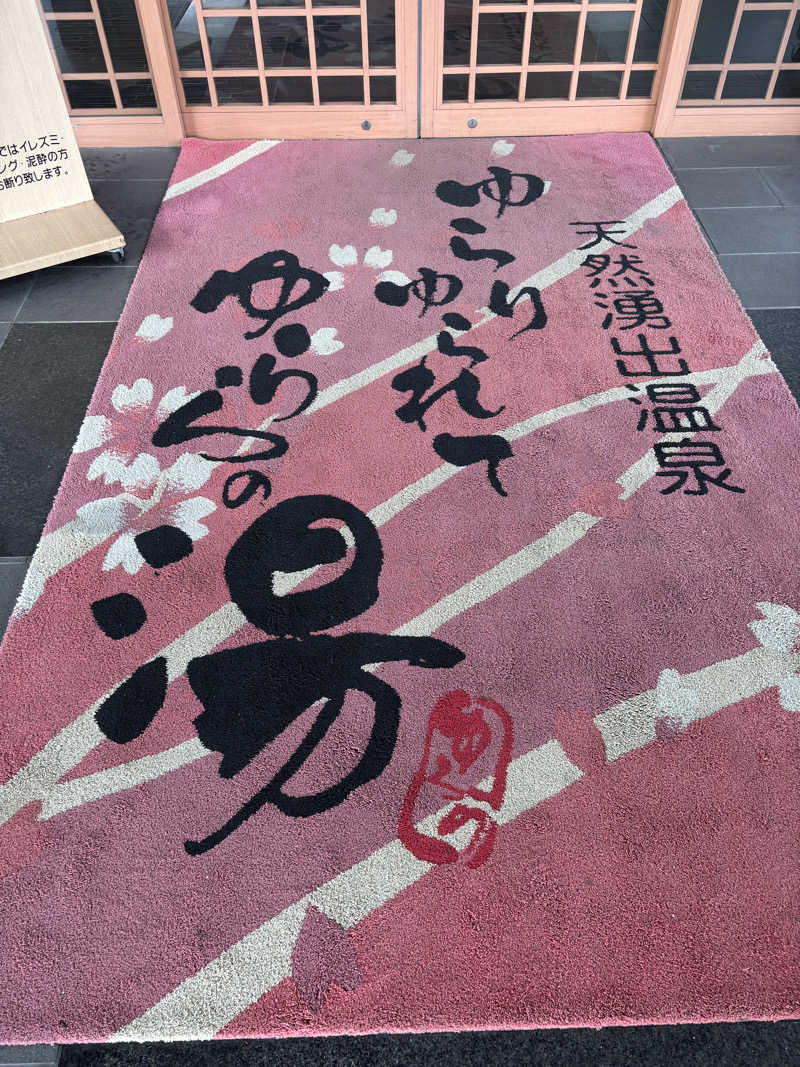 天然湧出温泉
ゆらり
ゆられて
ゆららの
湯
ゆららの
ではイレズミ・
ング・泥酔の方
お断り致します。